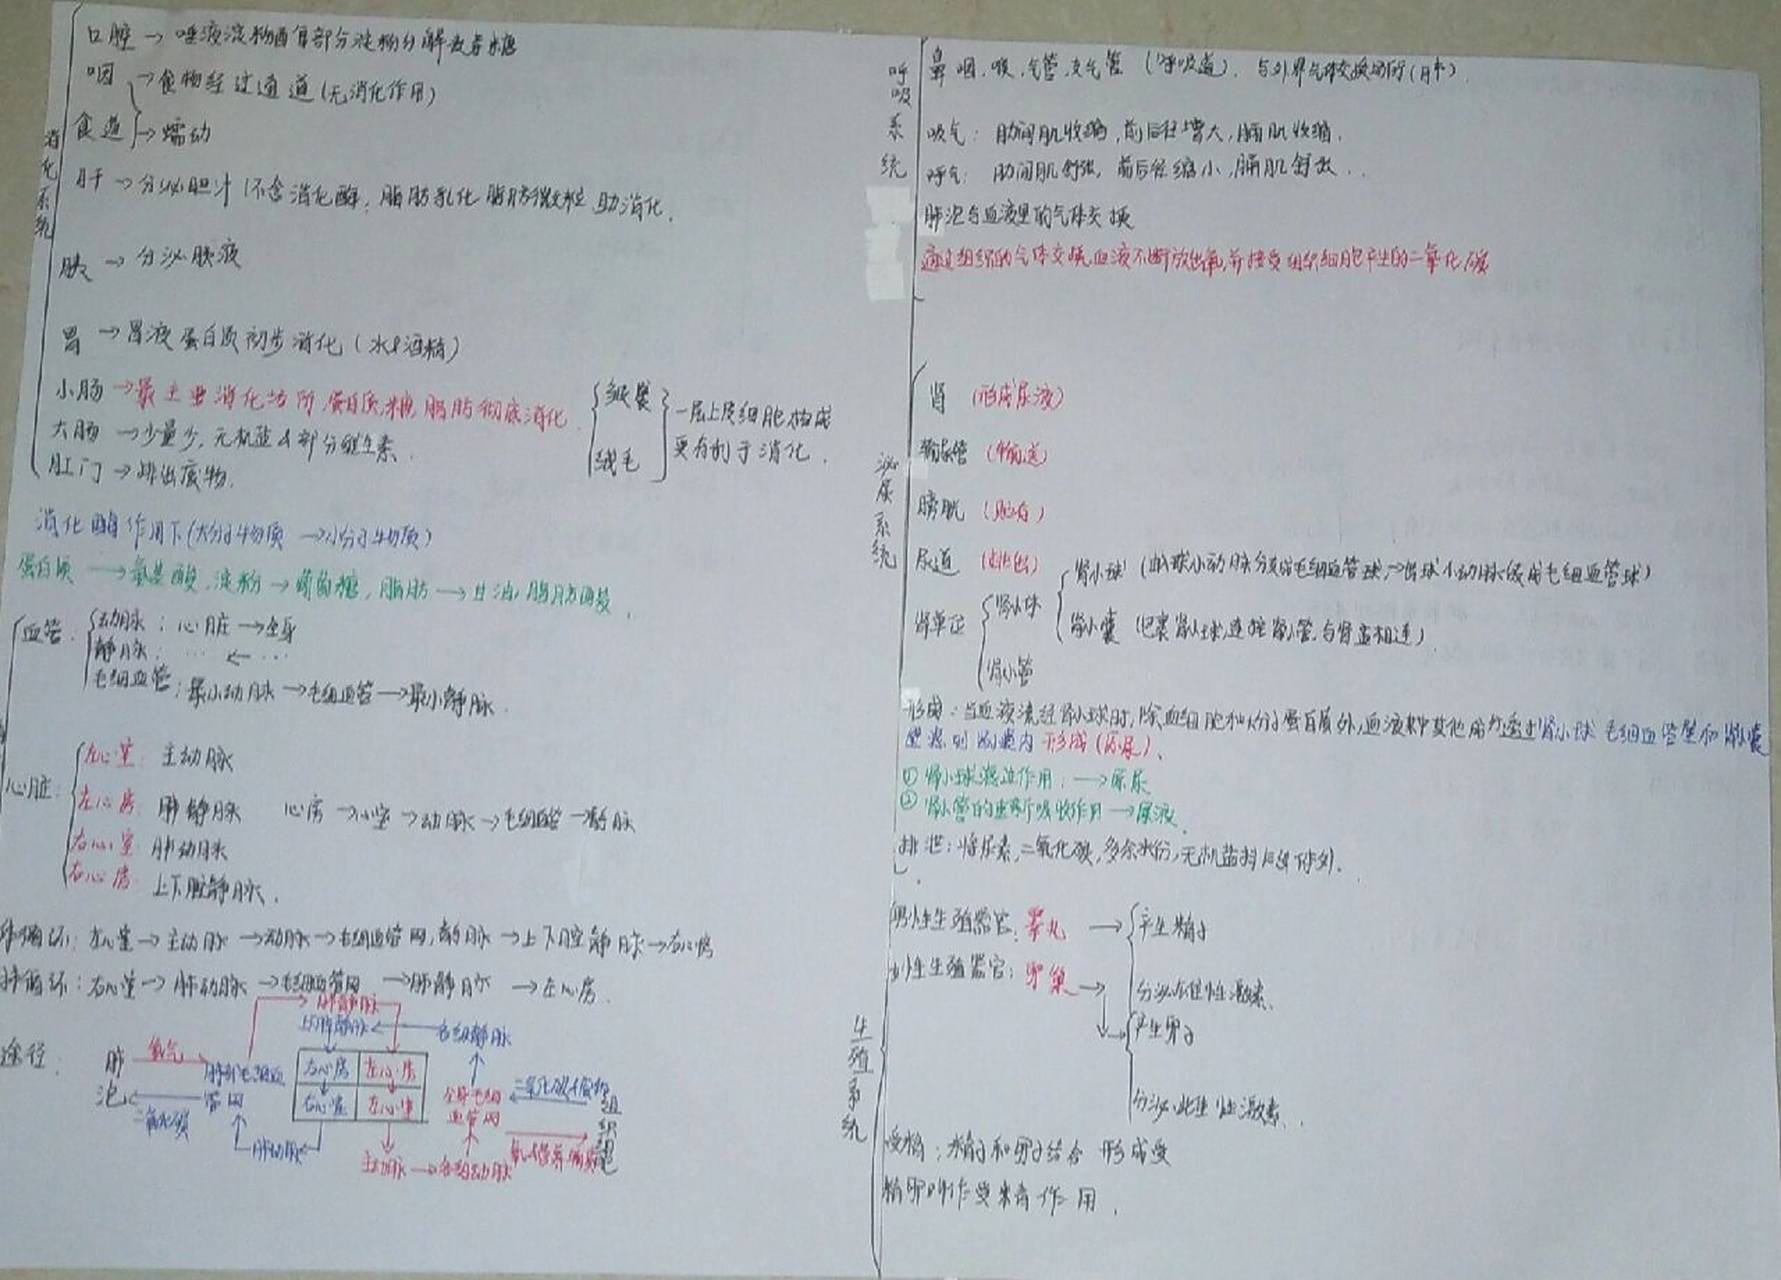 消化系统
口腔→唾液淀粉酶有部分淀粉分解麦芽糖
咽→食物经过通道(无消化作用)
食道→蠕动
肝→分泌胆汁(不含消化酶,脂肪乳化 脂肪微粒 助消化.
胰→分泌胰液
胃→胃液 蛋白质初步消化(水&酒精)
小肠→最主要消化场所,蛋白质,糖,脂肪彻底消化. 皱襞 绒毛 一层上皮细胞构成 更有利于消化.
大肠→少量水,无机盐&部分维生素.
肛门→排出废物.
消化酶作用下(大分子物质→小分子物质)
蛋白质→氨基酸,淀粉→葡萄糖,脂肪→甘油,脂肪酸.
血管: 动脉:心脏→全身
静脉:…←…
毛细血管:最小动脉→毛细血管→最小静脉.
心脏: 左心室:主动脉
左心房 肺静脉 心房→心室→动脉→毛细血管→静脉
右心室 肺动脉
右心房 上下腔静脉.
体循环:左心室→主动脉→动脉→毛细血管网,静脉→上下腔静脉→右心房
肺循环:右心室→肺动脉→毛细血管网→肺静脉→左心房.
肺静脉
上下腔静脉←各级静脉
途径: 肺泡 氧气 二氧化碳 肺部毛细血管网
右心房 左心房
右心室 左心室
全身毛细血管网 组织细胞
肺动脉
主动脉→各级动脉
呼吸系统
鼻.咽.喉.气管.支气管(呼吸道).与外界气体交换场所(肺).
吸气:肋间肌收缩,前后径增大,膈肌收缩.
呼气:肋间肌舒张,前后径缩小,膈肌舒张..
肺泡与血液里的气体交换
通过组织的气体交换,血液不断放出氧,并接受组织细胞产生的二氧化碳
泌尿系统
肾(形成尿液)
输尿管(输送)
膀胱(贮存)
尿道(排出)
肾单位 肾小体 肾小管
肾小球(入球小动脉分支成毛细血管球,→出球小动脉 毛细血管球)
肾小囊(包裹肾小球,连接肾小管,与肾盂相连)
形成:当血液流经肾小球时,除血细胞和大分子蛋白质外,血液中其他 透过肾小球 毛细血管壁和肾小囊
壁滤到 囊内 形成(原尿).
①肾小球滤过作用:→原尿
②肾小管的重新吸收作用→尿液.
排泄:将尿素,二氧化碳,多余水份,无机盐排 体外.
生殖系统
男性生殖器官:睾丸→产生精子
分泌 性激素.
女性生殖器官:卵巢→产生卵子
分泌雌性激素.
受精:精子和卵子结合 形成受
精卵叫作受精作用.